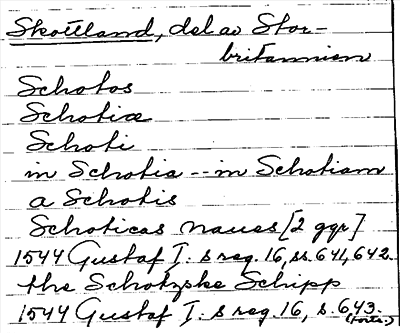 Skottland, del av Stor-
britannien
Schotos
Schotiæ
Schoti
in Schotia -- in Schotiam
a Schotis
Schoticas naues [2 ggr]
1544 Gustaf I: s reg. 16, ss. 641, 642.
the Schotzske Schipp
1544 Gustaf I: s reg. 16, s. 643.
(Forts.)